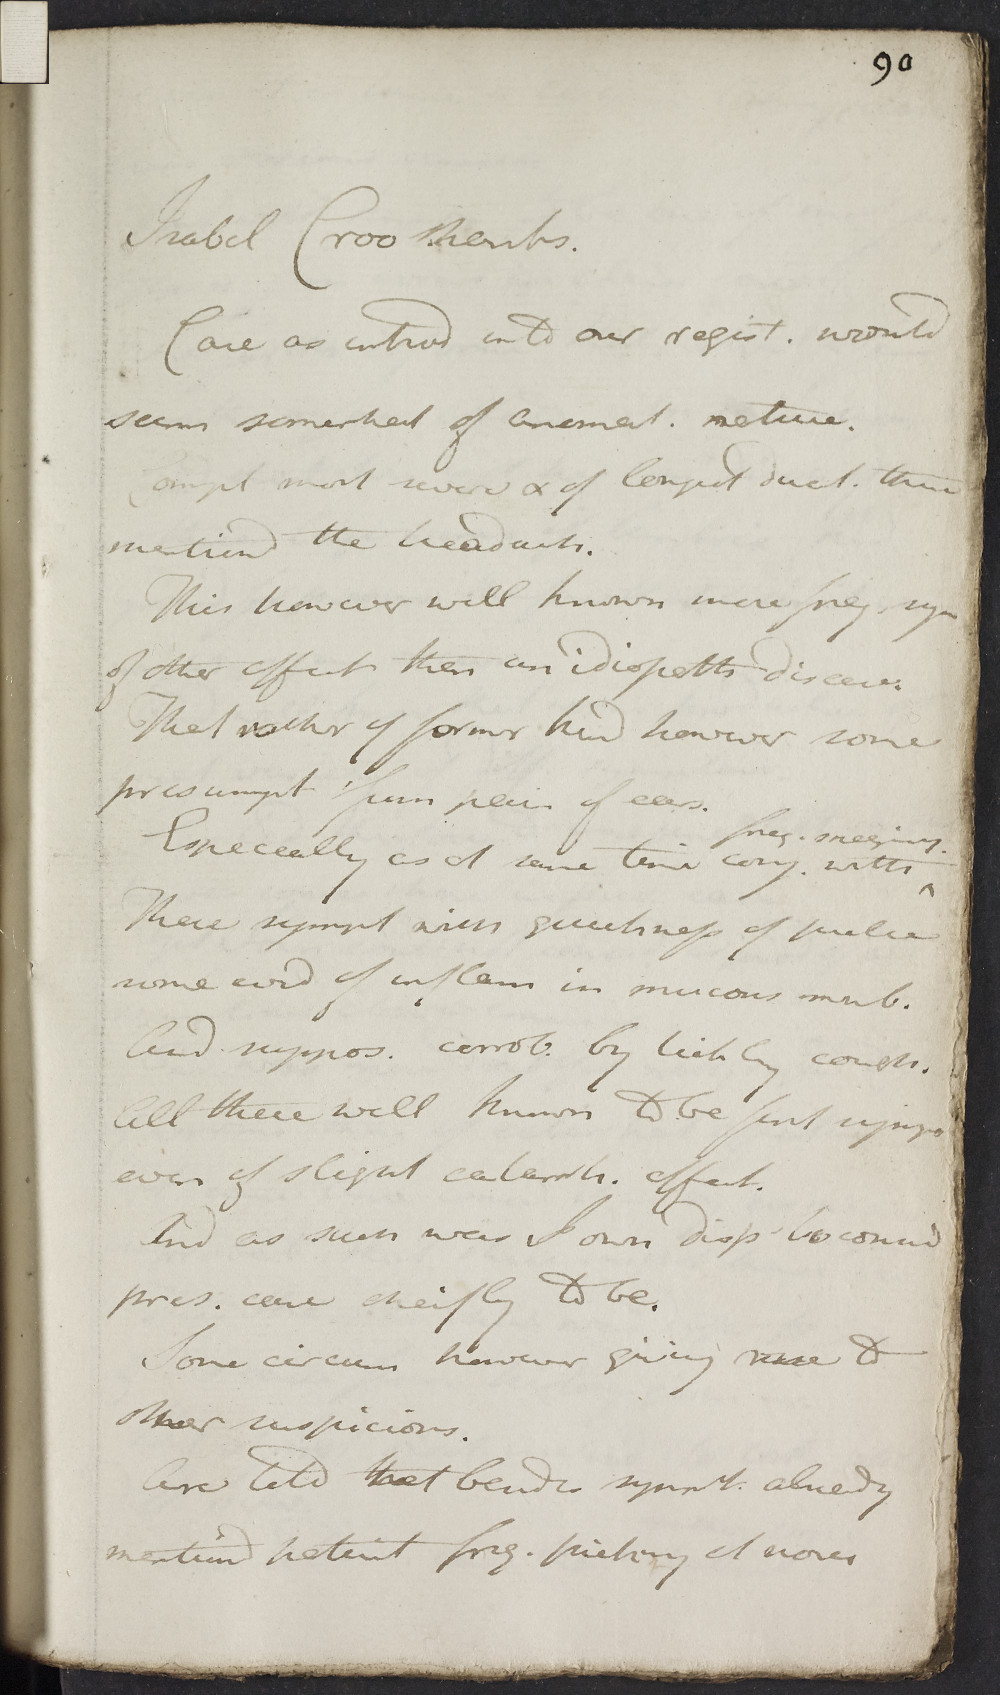 90
Isabel Crooshanks.
Case as introd into our regist. would
seem somewhat of anomal. nature.
Compl most severe & of longest durat. then
mention'd the headach.
This however well known more freq. sym
of other affect than an idiopath disease.
That rather of former kind however some
presumpt from pain of ears.
freq. sneezing.
Especially as at same time conj. with ^
These sympt with quickness of pulse
some evid of inflam in mucous memb.
And suppos. corrob. by tickling cough.
All these well known to be first symps
even of slight catarrh. affect.
And as such was I own disp to consid
pres. case cheifly to be.
Some circum however giving rise to
other suspicions.
Are told that besides sympt. already
mention'd patient freq. picking at nose